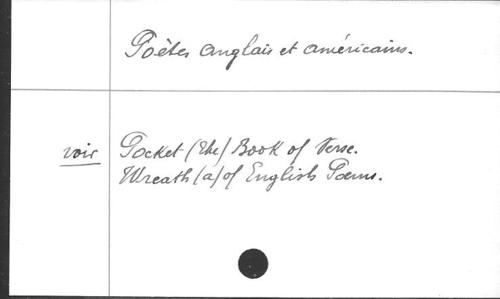 Poètes anglais et américains.
voir Pocket (the) Book of Verse.
Wreath (a) of English Poems.